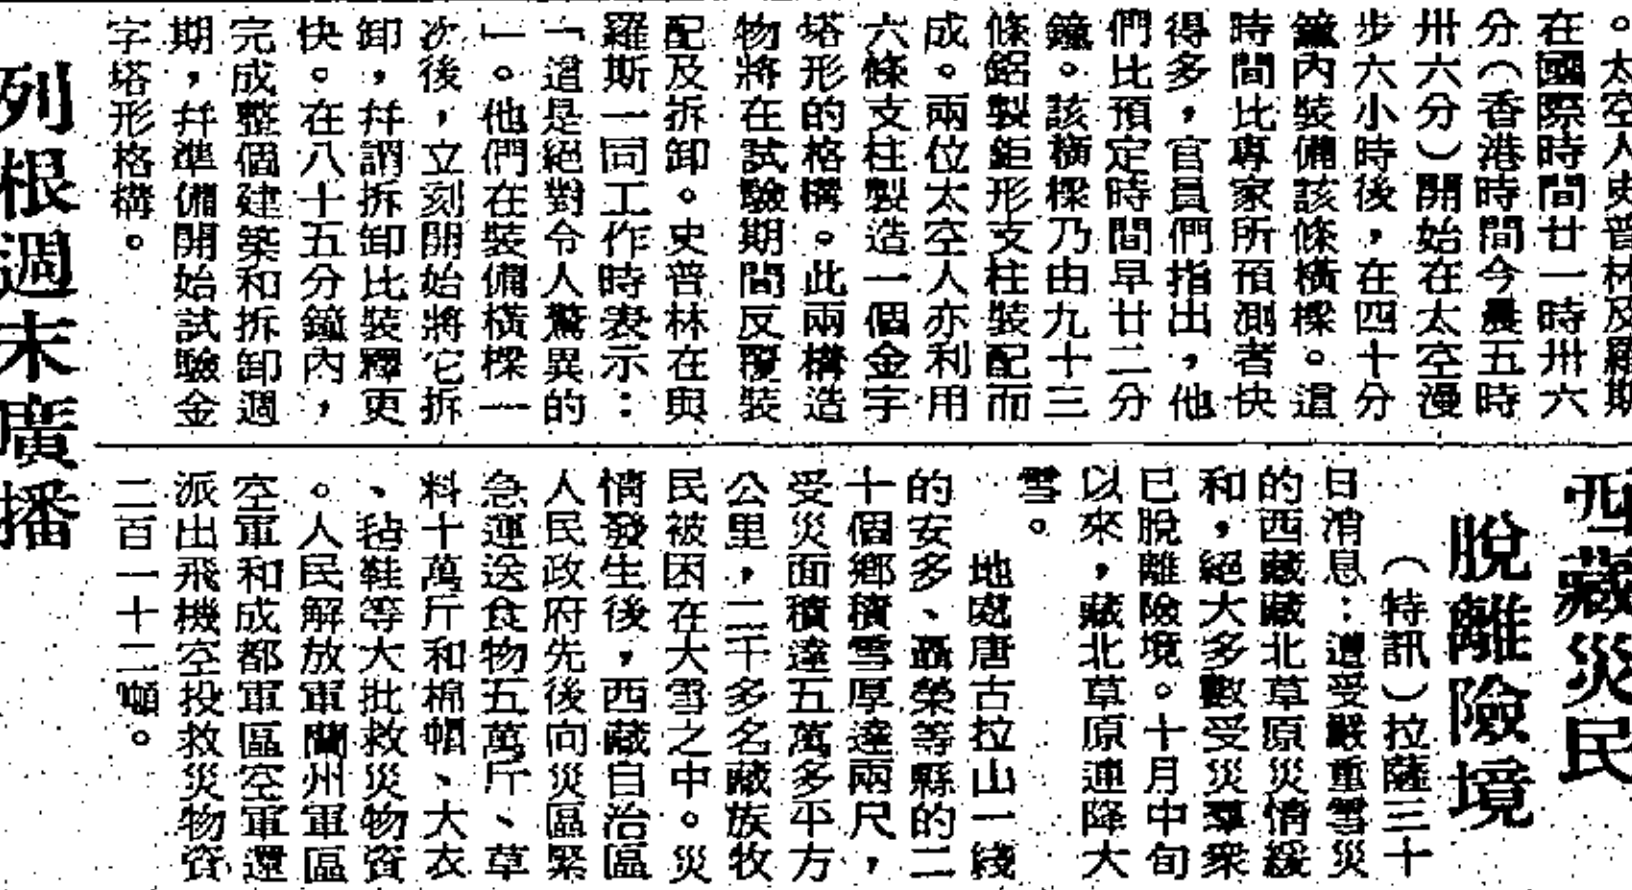 。太空人史普林及羅斯
在國際時間廿一時卅六
分（香港時間今晨五時
卅六分）開始在太空漫
步六小時後，在四十分
鐘內裝備該條橫樑。這
時間比專家所預測者快
得多，官員們指出，他
們比預定時間早廿二分
鐘。該橫樑乃由九十三
條鋁製鉅形支柱裝配而
成。兩位太空人亦利用
六條支柱製造一個金字
塔形的格構。此兩構造
物將在試驗期間反覆裝
配及拆卸。史普林在與
羅斯一同工作時表示：
「這是絕對令人驚異的
」。他們在裝備橫樑一
次後，立刻開始將它拆
卸，幷謂拆卸比裝釋更
快。在八十五分鐘內，
完成整個建築和拆卸週
期，幷準備開始試驗金
字塔形格構。
列根週末廣播
西藏災民
脫離險境
（特訊）拉薩三十
日消息：遭受嚴重雪災
的西藏藏北草原災情緩
和，絕大多數受災羣衆
已脫離險境。十月中旬
以來，藏北草原連降大
雪。
地處唐古拉山一綫
的安多、聶榮等縣的二
十個鄉積雪厚達兩尺，
受災面積達五萬多平方
公里，二千多名藏族牧
民被困在大雪之中。災
情發生後，西藏自治區
人民政府先後向災區緊
急運送食物五萬斤、草
料十萬斤和棉帽、大衣
、毡鞋等大批救災物資
。人民解放軍蘭州軍區
空軍和成都軍區空軍還
派出飛機空投救災物資
二百一十二噸。